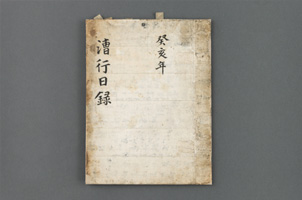 癸亥年
漕行日錄